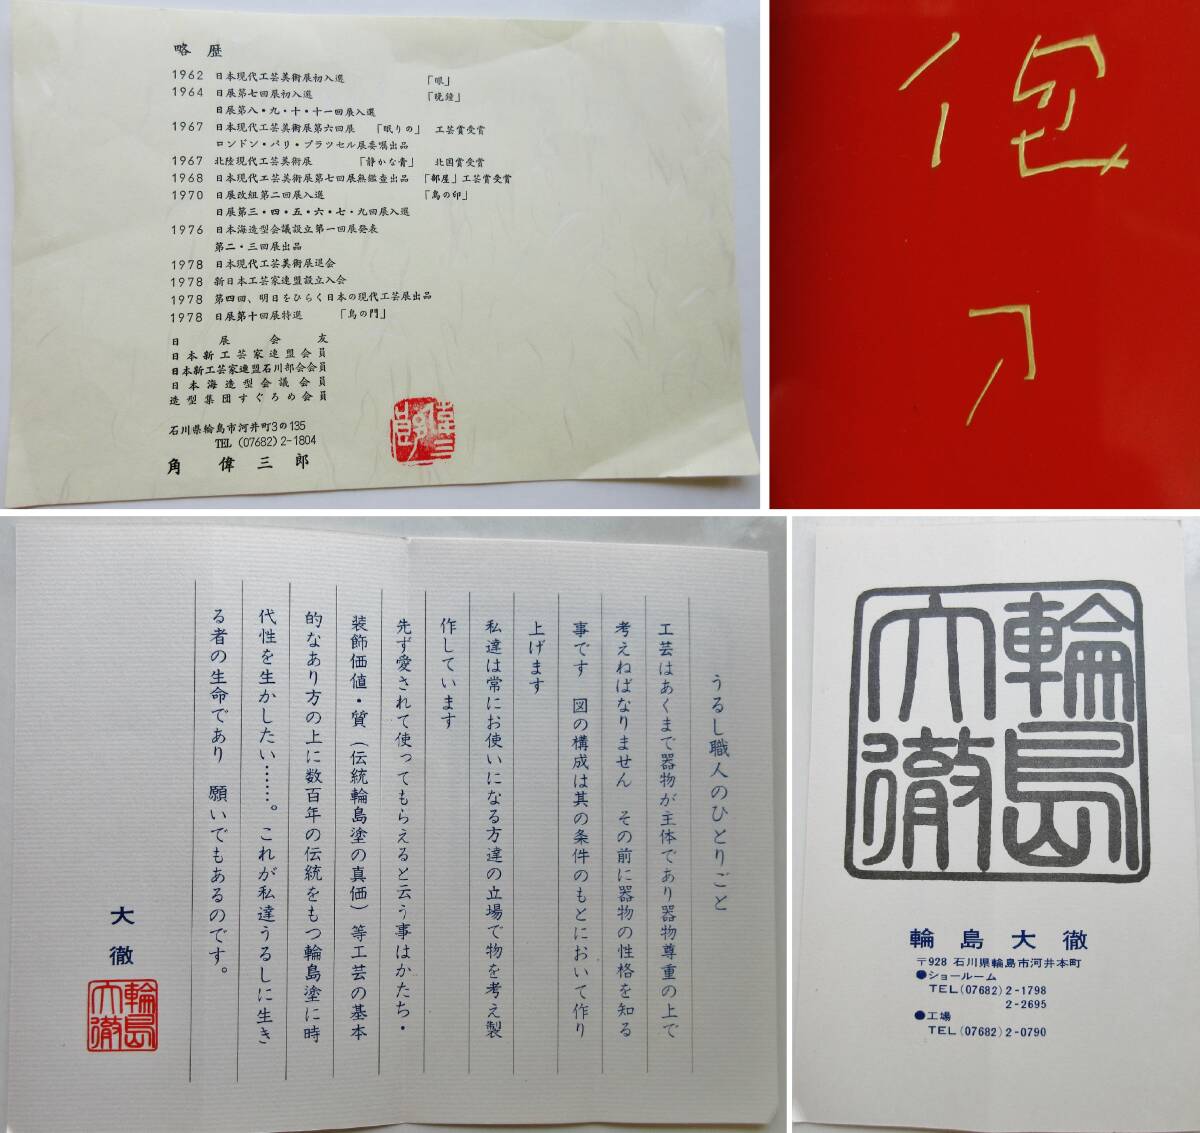 略歴
1962 日本現代工芸美術展初入選 「眼」
1964 日展第七回展初入選 「晩鐘」
日展第八・九・十・十一回展入選
1967 日本現代工芸美術展第六回展 「眠りの」 工芸賞受賞
ロンドン・パリ・ブラッセル展委嘱出品
1967 北陸現代工芸美術展 「静かな青」 北国賞受賞
1968 日本現代工芸美術展第七回展無鑑査出品 「部屋」工芸賞受賞
1970 日展改組第二回展入選 「鳥の印」
日展第三・四・五・六・七・九回展入選
1976 日本海造型会議設立第一回展発表
第二・三回展出品
1978 日本現代工芸美術展退会
1978 新日本工芸家連盟設立入会
1978 第四回、明日をひらく日本の現代工芸展出品
1978 日展第十回展特選 「鳥の門」
日展会友
日本新工芸家連盟会員
日本新工芸家連盟石川部会会員
日本海造型会議会員
造型集団すぐろめ会員
石川県輪島市河井町3の135
TEL (07682) 2-1804
角偉三郎
うるし職人のひとりごと
工芸はあくまで器物が主体であり器物尊重の上で
考えねばなりません その前に器物の性格を知る
事です 図の構成は其の条件のもとにおいて作り
上げます
私達は常にお使いになる方達の立場で物を考え製
作しています
先ず愛されて使ってもらえると云う事はかたち・
装飾価値・質(伝統輪島塗の真価)等工芸の基本
的なあり方の上に数百年の伝統をもつ輪島塗に時
代性を生かしたい……。これが私達うるしに生き
る者の生命であり 願いでもあるのです。
大徹
輪島
大徹
輪島
大徹
輪島大徹
〒928 石川県輪島市河井本町
●ショールーム
TEL(07682)2-1798
2-2695
●工場
TEL(07682)2-0790